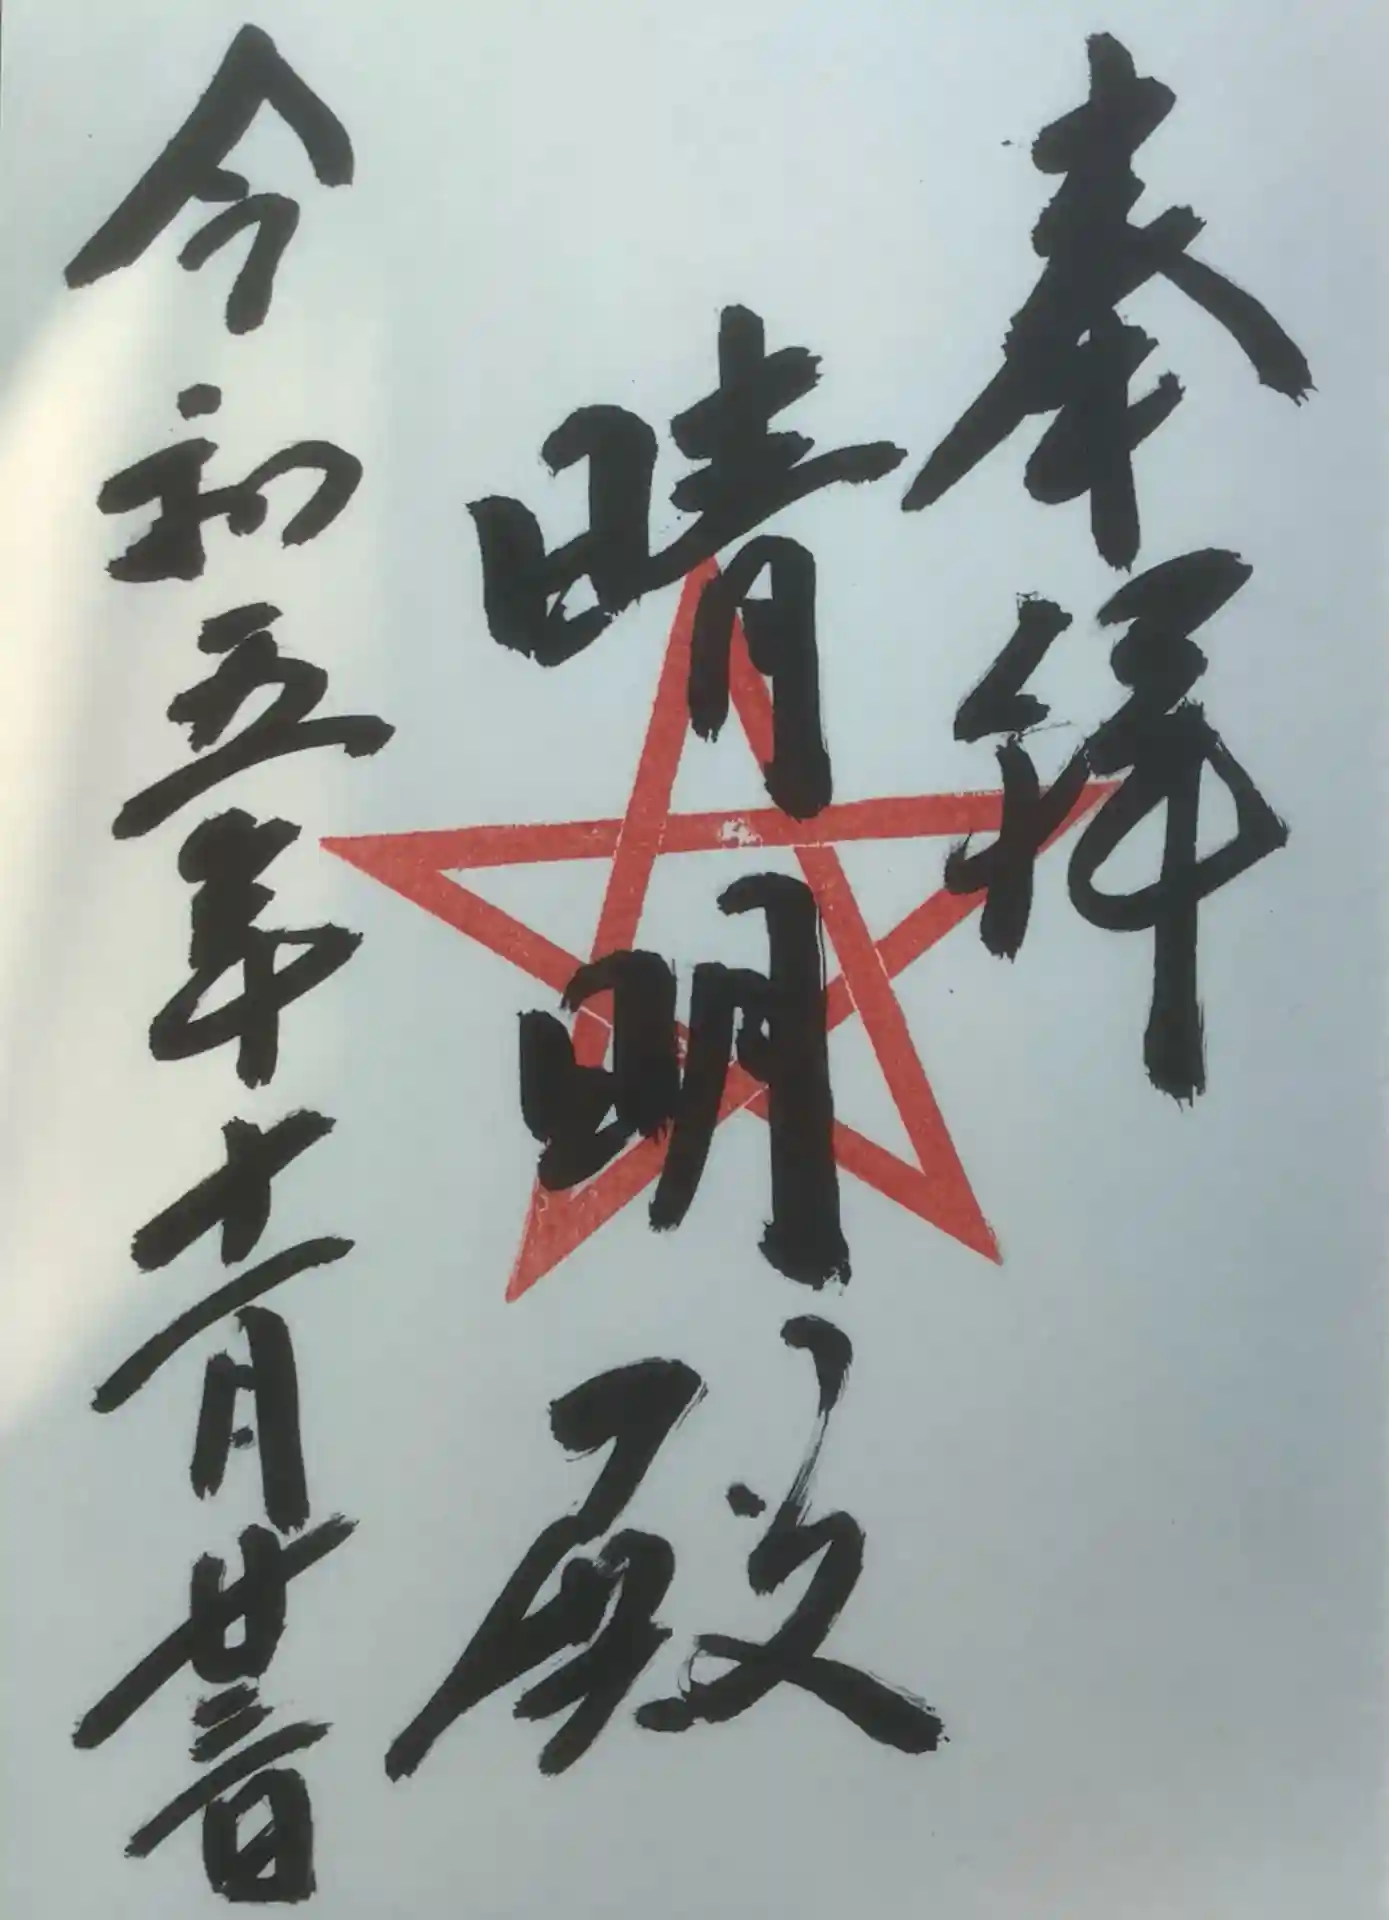 奉拝
晴明殿
令和五年十一月廿三日